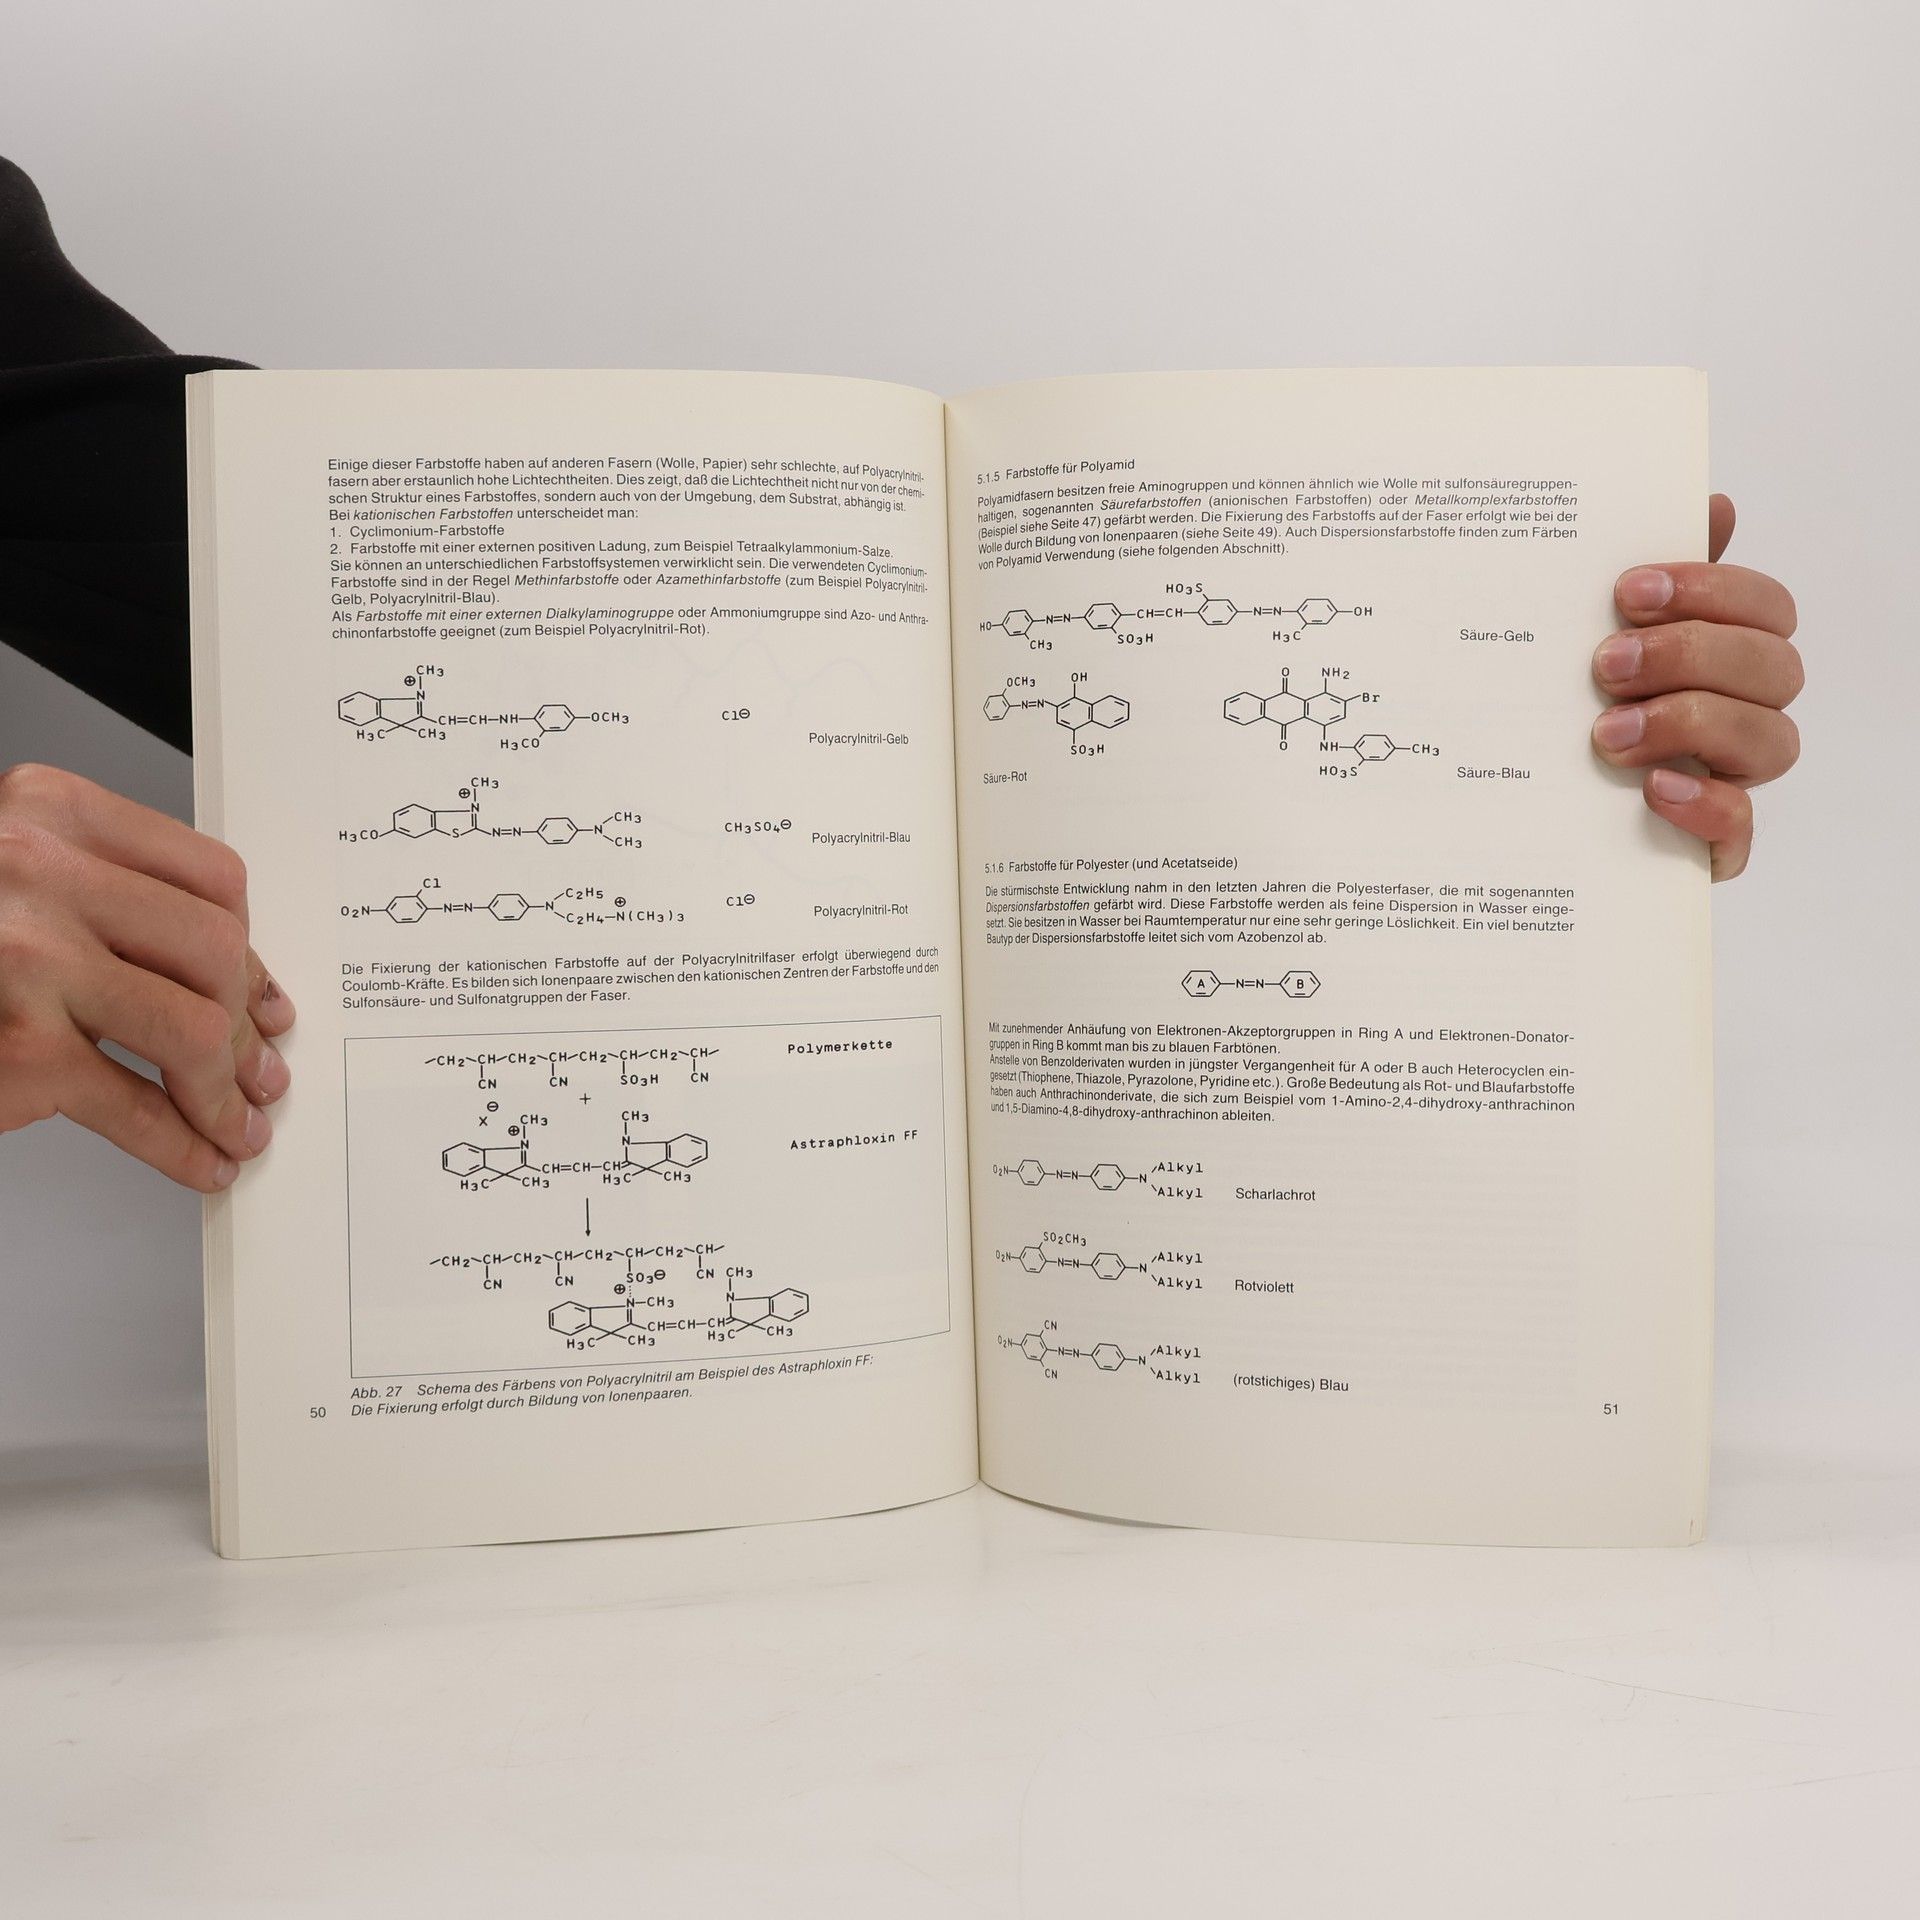 Einige dieser Farbstoffe haben auf anderen Fasern (Wolle, Papier) sehr schlechte, auf Polyacrylnitril-
fasern aber erstaunlich hohe Lichtechtheiten. Dies zeigt, daß die Lichtechtheit nicht nur von der chemi-
schen Struktur eines Farbstoffes, sondern auch von der Umgebung, dem Substrat, abhängig ist.
Bei kationischen Farbstoffen unterscheidet man:
1. Cyclimonium-Farbstoffe
2. Farbstoffe mit einer externen positiven Ladung, zum Beispiel Tetraalkylammonium-Salze.
Sie können an unterschiedlichen Farbstoffsystemen verwirklicht sein. Die verwendeten Cyclimonium-
Farbstoffe sind in der Regel Methinfarbstoffe oder Azamethinfarbstoffe (zum Beispiel Polyacrylnitril-
Gelb, Polyacrylnitril-Blau).
Als Farbstoffe mit einer externen Dialkylaminogruppe oder Ammoniumgruppe sind Azo- und Anthra-
chinonfarbstoffe geeignet (zum Beispiel Polyacrylnitril-Rot).
CH3
⊕
N
CH=CH—NH
OCH3
Cl⊖
H3C
CH3
H3CO
Polyacrylnitril-Gelb
CH3
⊕
N
H3CO
S
N=N
N
CH3
CH3
CH3SO4⊖
Polyacrylnitril-Blau
Cl
O2N
N=N
N
C2H5
⊕
C2H4—N(CH3)3
Cl⊖
Polyacrylnitril-Rot
Die Fixierung der kationischen Farbstoffe auf der Polyacrylnitrilfaser erfolgt überwiegend durch
Coulomb-Kräfte. Es bilden sich Ionenpaare zwischen den kationischen Zentren der Farbstoffe und den
Sulfonsäure- und Sulfonatgruppen der Faser.
—CH2—CH—CH2—CH—CH2—CH—CH2—CH—
Polymerkette
CN CN SO3H CN
+
X⊖
⊕
CH3
CH3
N
N
Astraphloxin FF
CH=CH—CH
H3C CH3 H3C CH3
—CH2—CH—CH2—CH—CH2—CH—CH2—CH—
CN CN SO3⊖ CN CH3
⊕
N—CH3
N
CH=CH—CH
H3C CH3 H3C CH3
Abb. 27 Schema des Färbens von Polyacrylnitril am Beispiel des Astraphloxin FF:
Die Fixierung erfolgt durch Bildung von Ionenpaaren.
50
5.1.5 Farbstoffe für Polyamid
Polyamidfasern besitzen freie Aminogruppen und können ähnlich wie Wolle mit sulfonsäuregruppen-
haltigen, sogenannten Säurefarbstoffen (anionischen Farbstoffen) oder Metallkomplexfarbstoffen
(Beispiel siehe Seite 47) gefärbt werden. Die Fixierung des Farbstoffs auf der Faser erfolgt wie bei der
Wolle durch Bildung von Ionenpaaren (siehe Seite 49). Auch Dispersionsfarbstoffe finden zum Färben
von Polyamid Verwendung (siehe folgenden Abschnitt).
HO3S
HO
N=N
CH=CH
N=N
OH
CH3
SO3H
H3C
Säure-Gelb
OCH3
OH
N=N
SO3H
Säure-Rot
O
NH2
Br
O
NH
CH3
HO3S
Säure-Blau
5.1.6 Farbstoffe für Polyester (und Acetatseide)
Die stürmischste Entwicklung nahm in den letzten Jahren die Polyesterfaser, die mit sogenannten
Dispersionsfarbstoffen gefärbt wird. Diese Farbstoffe werden als feine Dispersion in Wasser einge-
setzt. Sie besitzen in Wasser bei Raumtemperatur nur eine sehr geringe Löslichkeit. Ein viel benutzter
Bautyp der Dispersionsfarbstoffe leitet sich vom Azobenzol ab.
A —N=N— B
Mit zunehmender Anhäufung von Elektronen-Akzeptorgruppen in Ring A und Elektronen-Donator-
gruppen in Ring B kommt man bis zu blauen Farbtönen.
Anstelle von Benzolderivaten wurden in jüngster Vergangenheit für A oder B auch Heterocyclen ein-
gesetzt (Thiophene, Thiazole, Pyrazolone, Pyridine etc.). Große Bedeutung als Rot- und Blaufarbstoffe
haben auch Anthrachinonderivate, die sich zum Beispiel vom 1-Amino-2,4-dihydroxy-anthrachinon
und 1,5-Diamino-4,8-dihydroxy-anthrachinon ableiten.
O2N
N=N
N
Alkyl
Alkyl
Scharlachrot
SO2CH3
O2N
N=N
N
Alkyl
Alkyl
Rotviolett
CN
O2N
N=N
N
Alkyl
Alkyl
CN
(rotstichiges) Blau
51